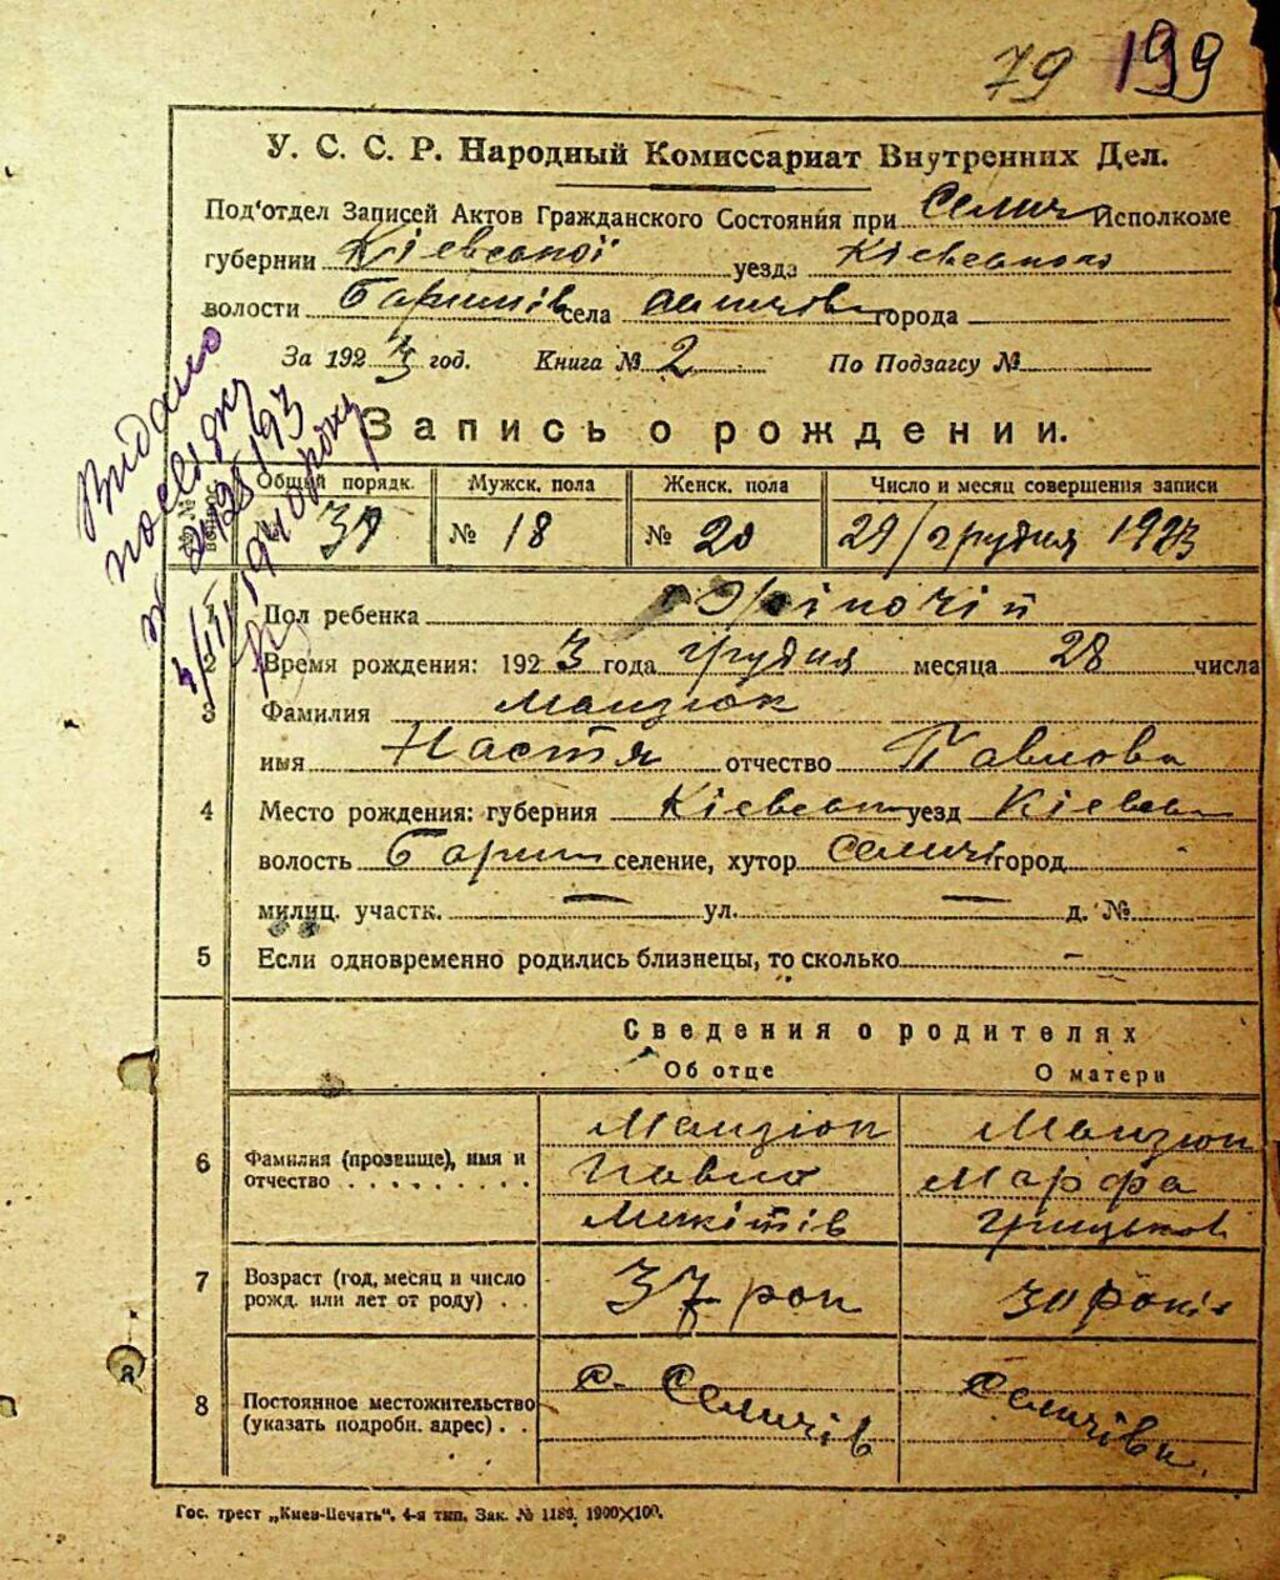 79 199
У. С. С. Р. Народный Комиссариат Внутренних Дел.
Под'отдел Записей Актов Гражданского Состояния при Селич Исполкоме
губернии Кіевської уезда Кіевського
волости села города
За 1923 год. Книга № 2 По Подзагсу №
Видано
посвідку
Запись о рождении.
Общий порядк. Мужск. пола Женск. пола Число и месяц совершения записи
№ 18 № 20 29/грудня 1923
1 Пол ребенка Жіночій
2 Время рождения: 1923 года грудня месяца 28 числа
3 Фамилия Манзюк
имя Настя отчество Павлова
4 Место рождения: губерния Кіевськ уезд Кіевськ
волость селение, хутор город -
милиц. участк. — ул. — д. №
5 Если одновременно родились близнецы, то сколько -
Сведения о родителях
Об отце О матери
6 Фамилия (прозвище), имя и отчество Манзюк Павло Микітів Манзюк Марфа Грицьков
7 Возраст (год, месяц и число рожд. или лет от роду) 37 рок 30 років
8 Постоянное местожительство (указать подробн. адрес) с. Селичів Селичівк
Гос. трест „Киев-Печать“, 4-я тип. Зак. № 1183. 1900×100.